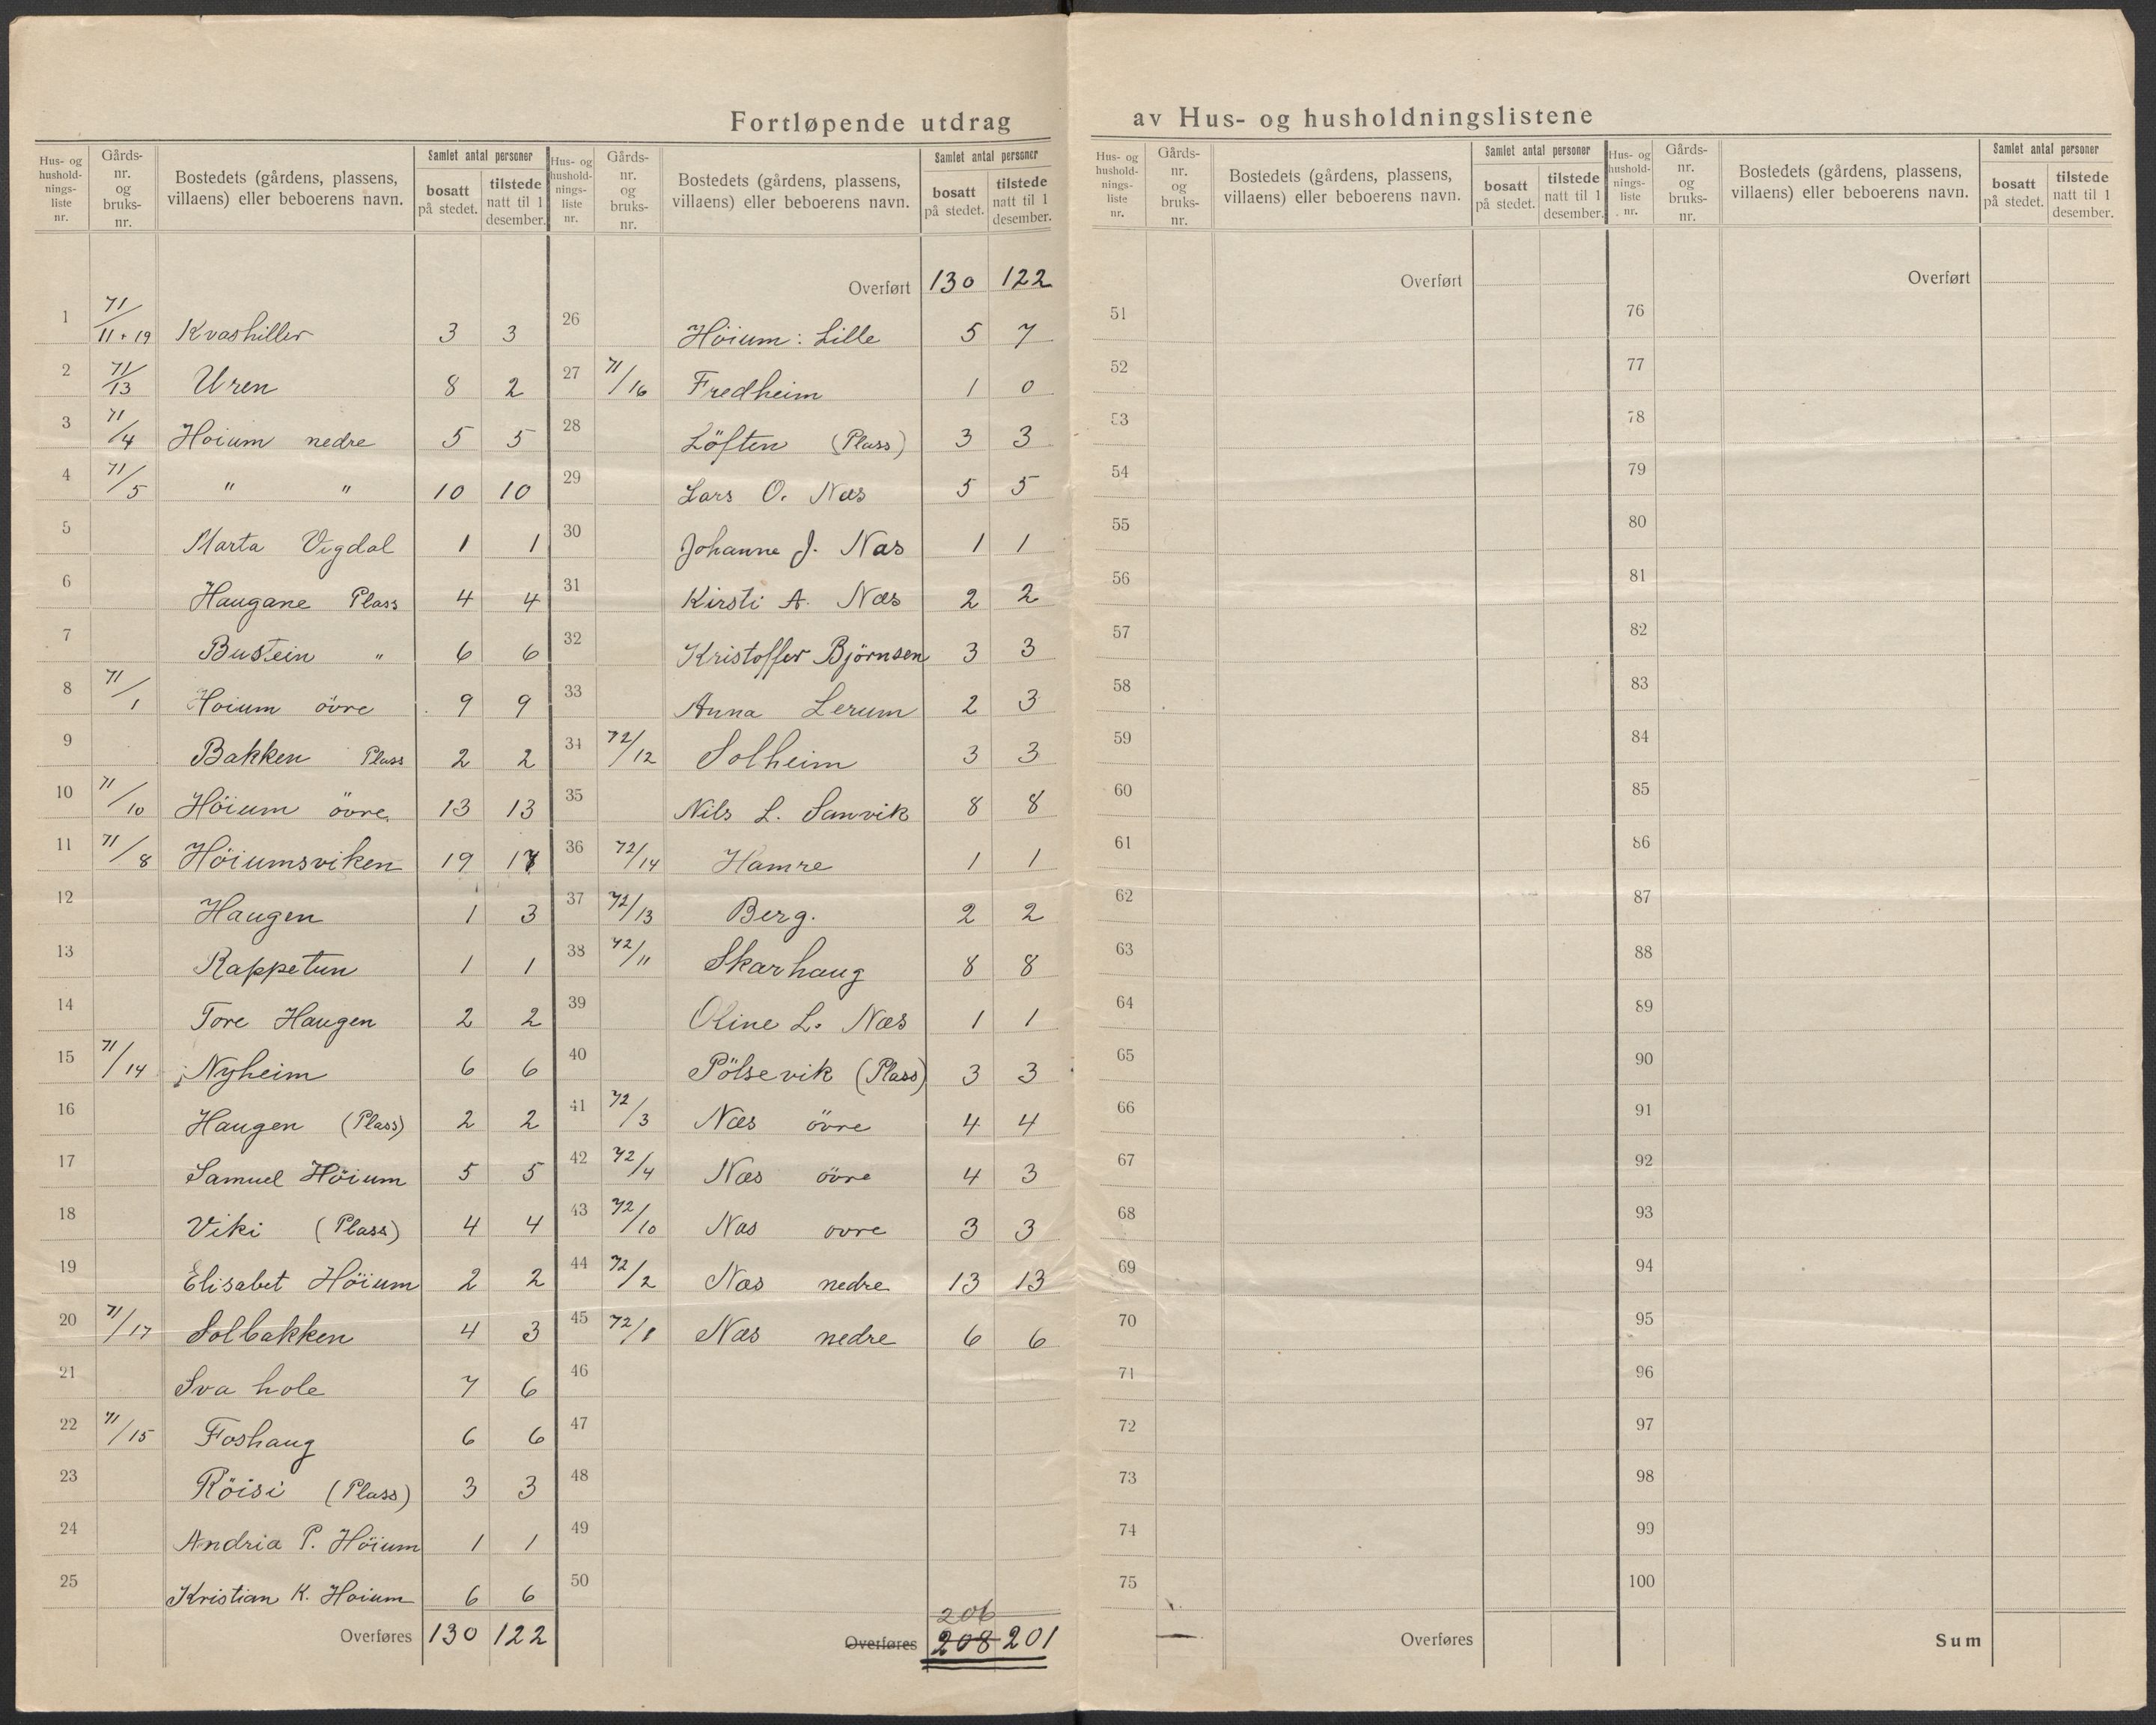 Fortløpende utdrag av Hus- og husholdningslistene
Hus- og hushold-nings-liste nr. Gårds-nr. og bruks-nr. Bostedets (gårdens, plassens, villaens) eller beboerens navn. Samlet antal personer bosatt på stedet. tilstede natt til 1 desember.
1 71/11+19 Kvashiller 3 3
2 71/13 Uren 8 2
3 71/4 Hoium nedre 5 5
4 71/5 " " 10 10
5 Marta Vigdal 1 1
6 Haugane Plass 4 4
7 Bustein " 6 6
8 71/1 Hoium övre 9 9
9 Bakken Plass 2 2
10 71/10 Höium övre 13 13
11 71/8 Höiumsviken 19
12 Haugen 1 3
13 Rappetun 1 1
14 Tore Haugen 2 2
15 71/14 Nyheim 6 6
16 Haugen (Plass) 2 2
17 Samuel Höium 5 5
18 Viki (Plass) 4 4
19 Elisabet Höium 2 2
20 71/17 Solbakken 4 3
21 Sva hole 7 6
22 71/15 Foshaug 6 6
23 Röisi (Plass) 3 3
24 Andria P. Höium 1 1
25 Kristian K. Hoium 6 6
Overføres 130 122
Hus- og hushold-nings-liste nr. Gårds-nr. og bruks-nr. Bostedets (gårdens, plassens, villaens) eller beboerens navn. Samlet antal personer bosatt på stedet. tilstede natt til 1 desember.
Overført 130 122
26 Höium: Lille 5 7
27 71/16 Fredheim 1 0
28 Löften (Plass) 3 3
29 Lars O. Næs 5 5
30 Johanne J. Næs 1 1
31 Kirsti A. Næs 2 2
32 Kristoffer Björnsen 3 3
33 Anna Lerum 2 3
34 72/12 Solheim 3 3
35 Nils L. Sanvik 8 8
36 72/14 Hamre 1 1
37 72/13 Berg. 2 2
38 72/11 Skarhaug 8 8
39 Oline L. Næs 1 1
40 Pölsevik (Plass) 3 3
41 72/3 Næs övre 4 4
42 72/4 Næs övre 4 3
43 72/10 Nas ovre 3 3
44 72/2 Næs nedre 13 13
45 72/1 Næs nedre 6 6
46
47
48
49
50
206
Overføres 208 201
Hus- og hushold-nings-liste nr. Gårds-nr. og bruks-nr. Bostedets (gårdens, plassens, villaens) eller beboerens navn. Samlet antal personer bosatt på stedet. tilstede natt til 1 desember.
Overført
51
52
53
54
55
56
57
58
59
60
61
62
63
64
65
66
67
68
69
70
71
72
73
74
75
Overføres
Hus- og hushold-nings-liste nr. Gårds-nr. og bruks-nr. Bostedets (gårdens, plassens, villaens) eller beboerens navn. Samlet antal personer bosatt på stedet. tilstede natt til 1 desember.
Overført
76
77
78
79
80
81
82
83
84
85
86
87
88
89
90
91
92
93
94
95
96
97
98
99
100
Sum